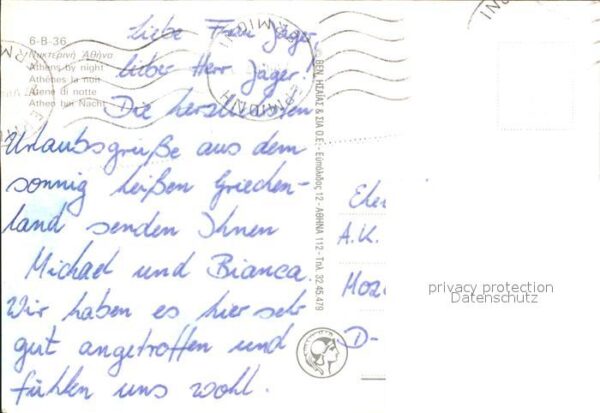 6-B-36
Νυκτερινή Ἀθήνα
Athens by night
Athènes la nuit
Atene di notte
Athen bei Nacht
Liebe Frau Jäger,
lieber Herr Jäger!
Die herzlichsten
Urlaubsgrüße aus dem
sonnig heißen Griechen-
land senden Ihnen
Michael und Bianca.
Wir haben es hier sehr
gut angetroffen und
fühlen uns wohl.
ΒΕΝ. ΗΣΑΪΑΣ & ΣΙΑ Ο.Ε. - Εὐπόλιδος 12 - ΑΘΗΝΑ 112 - Τηλ. 32.45.479
A.K.
Moz
D-
privacy protection
Datenschutz